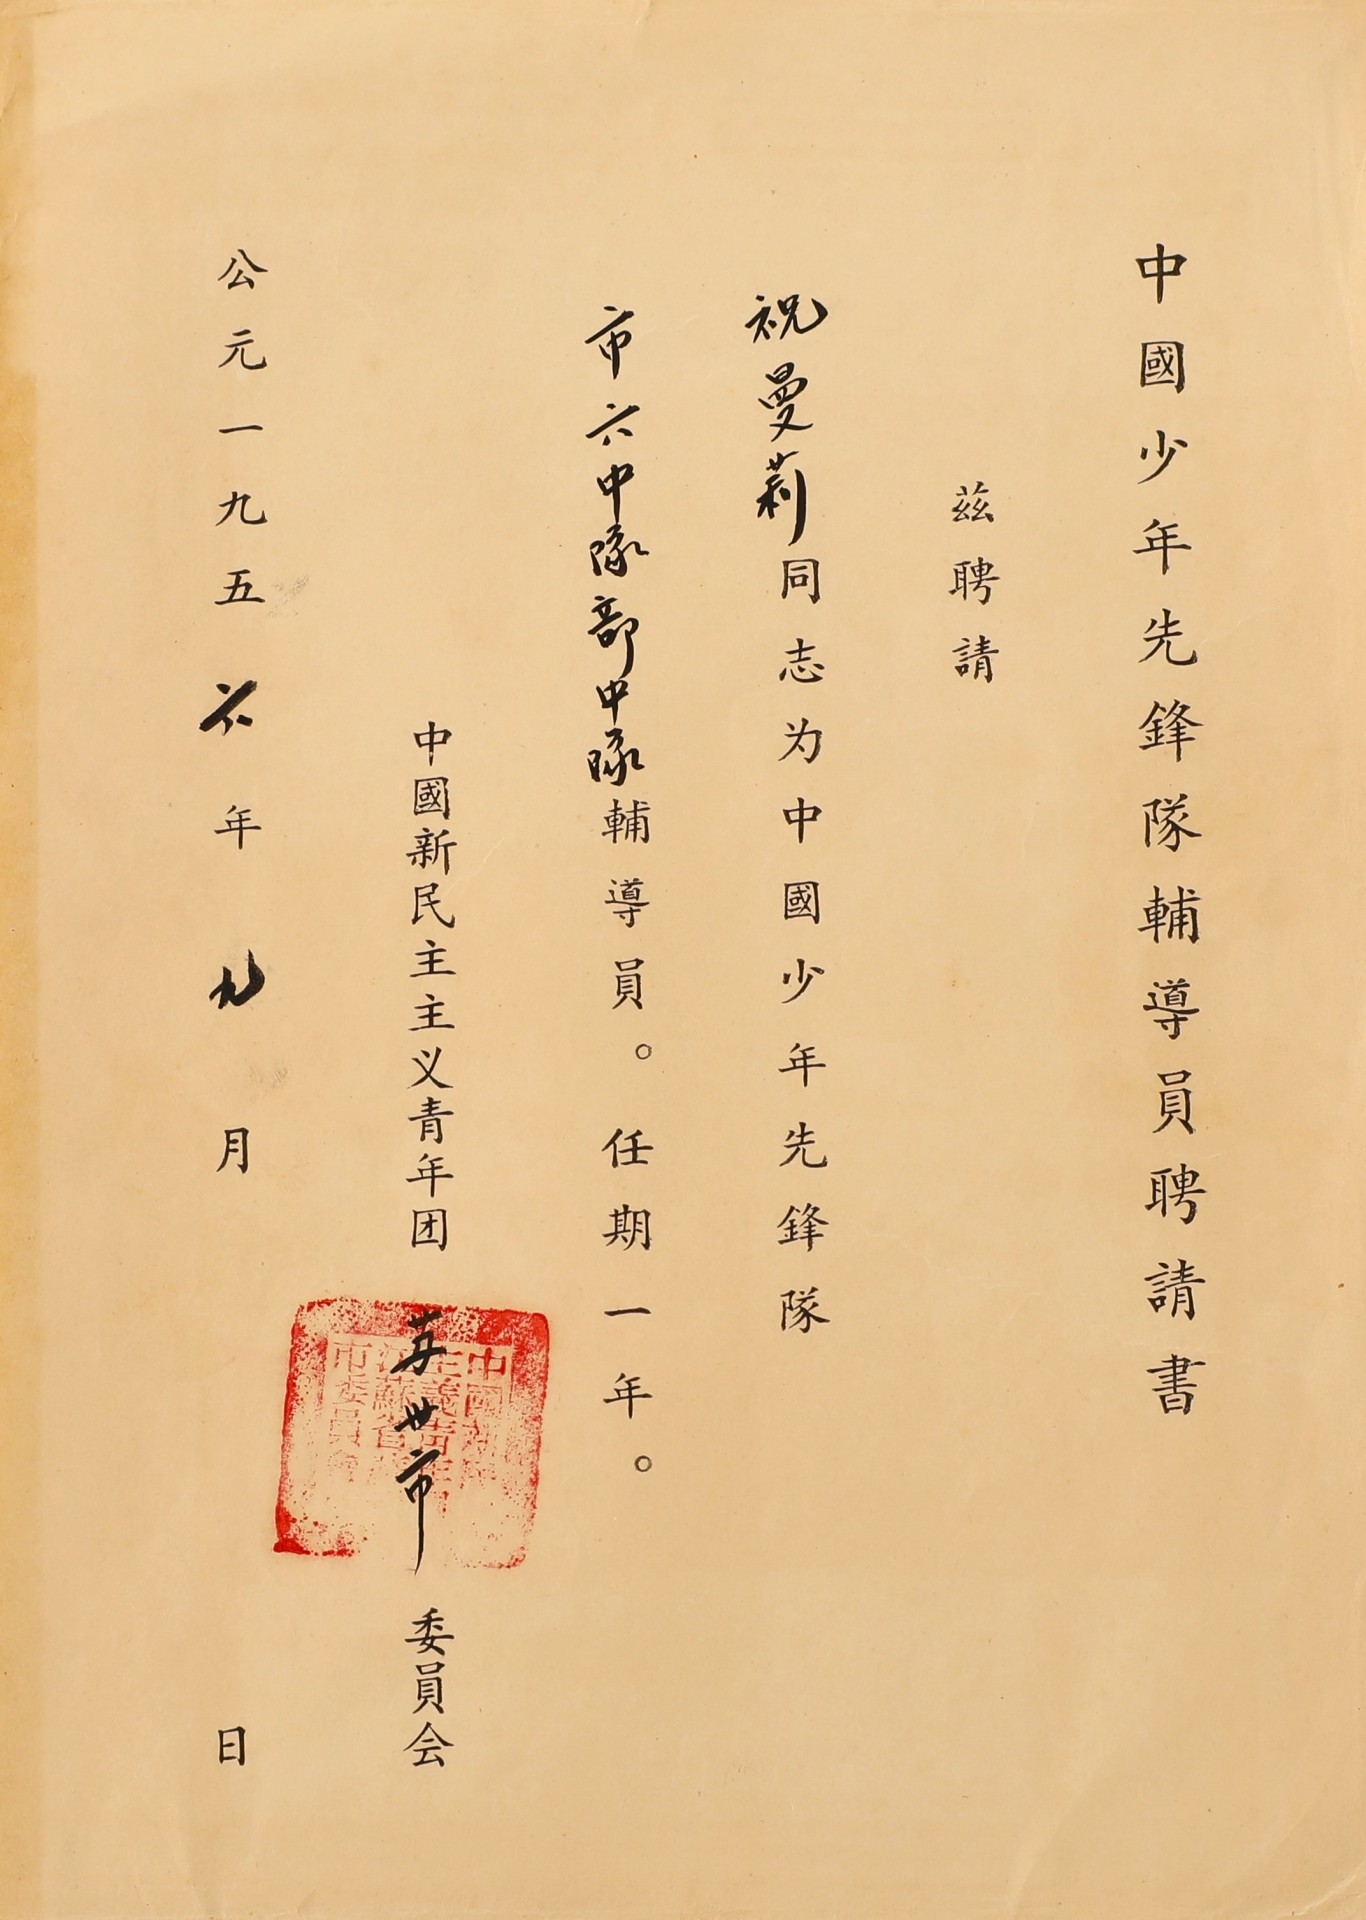 中國少年先鋒隊輔導員聘請書
茲聘請
祝曼莉同志为中國少年先鋒隊
市六中隊部中隊輔導員。任期一年。
中國新民主主义青年团苏州市委員会
公元一九五六年九月 日
中國新
主義青年
江蘇省
市委員會